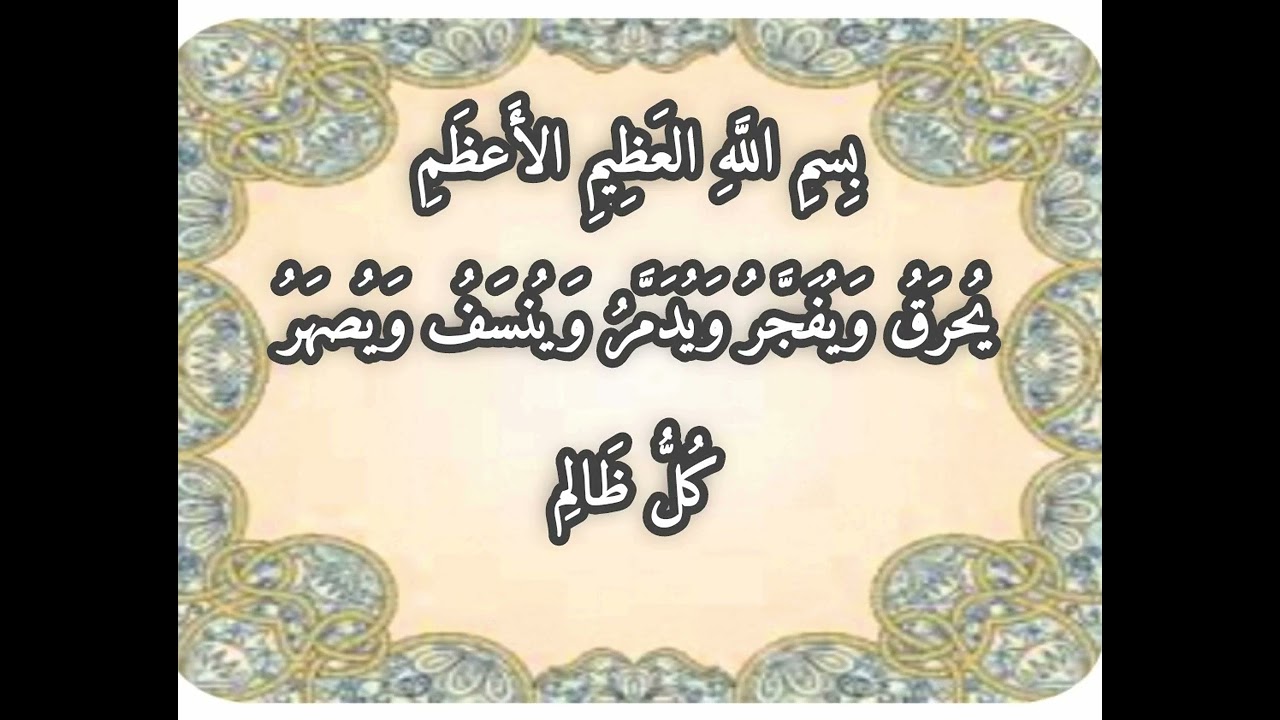 بِسمِ اللَّهِ العَظِيمِ الأَعظَمِ
يُحرَقُ وَيُفَجَّرُ وَيُدَمَّرُ وَيُنسَفُ وَيُصهَرُ
كُلُّ ظَالِمِ